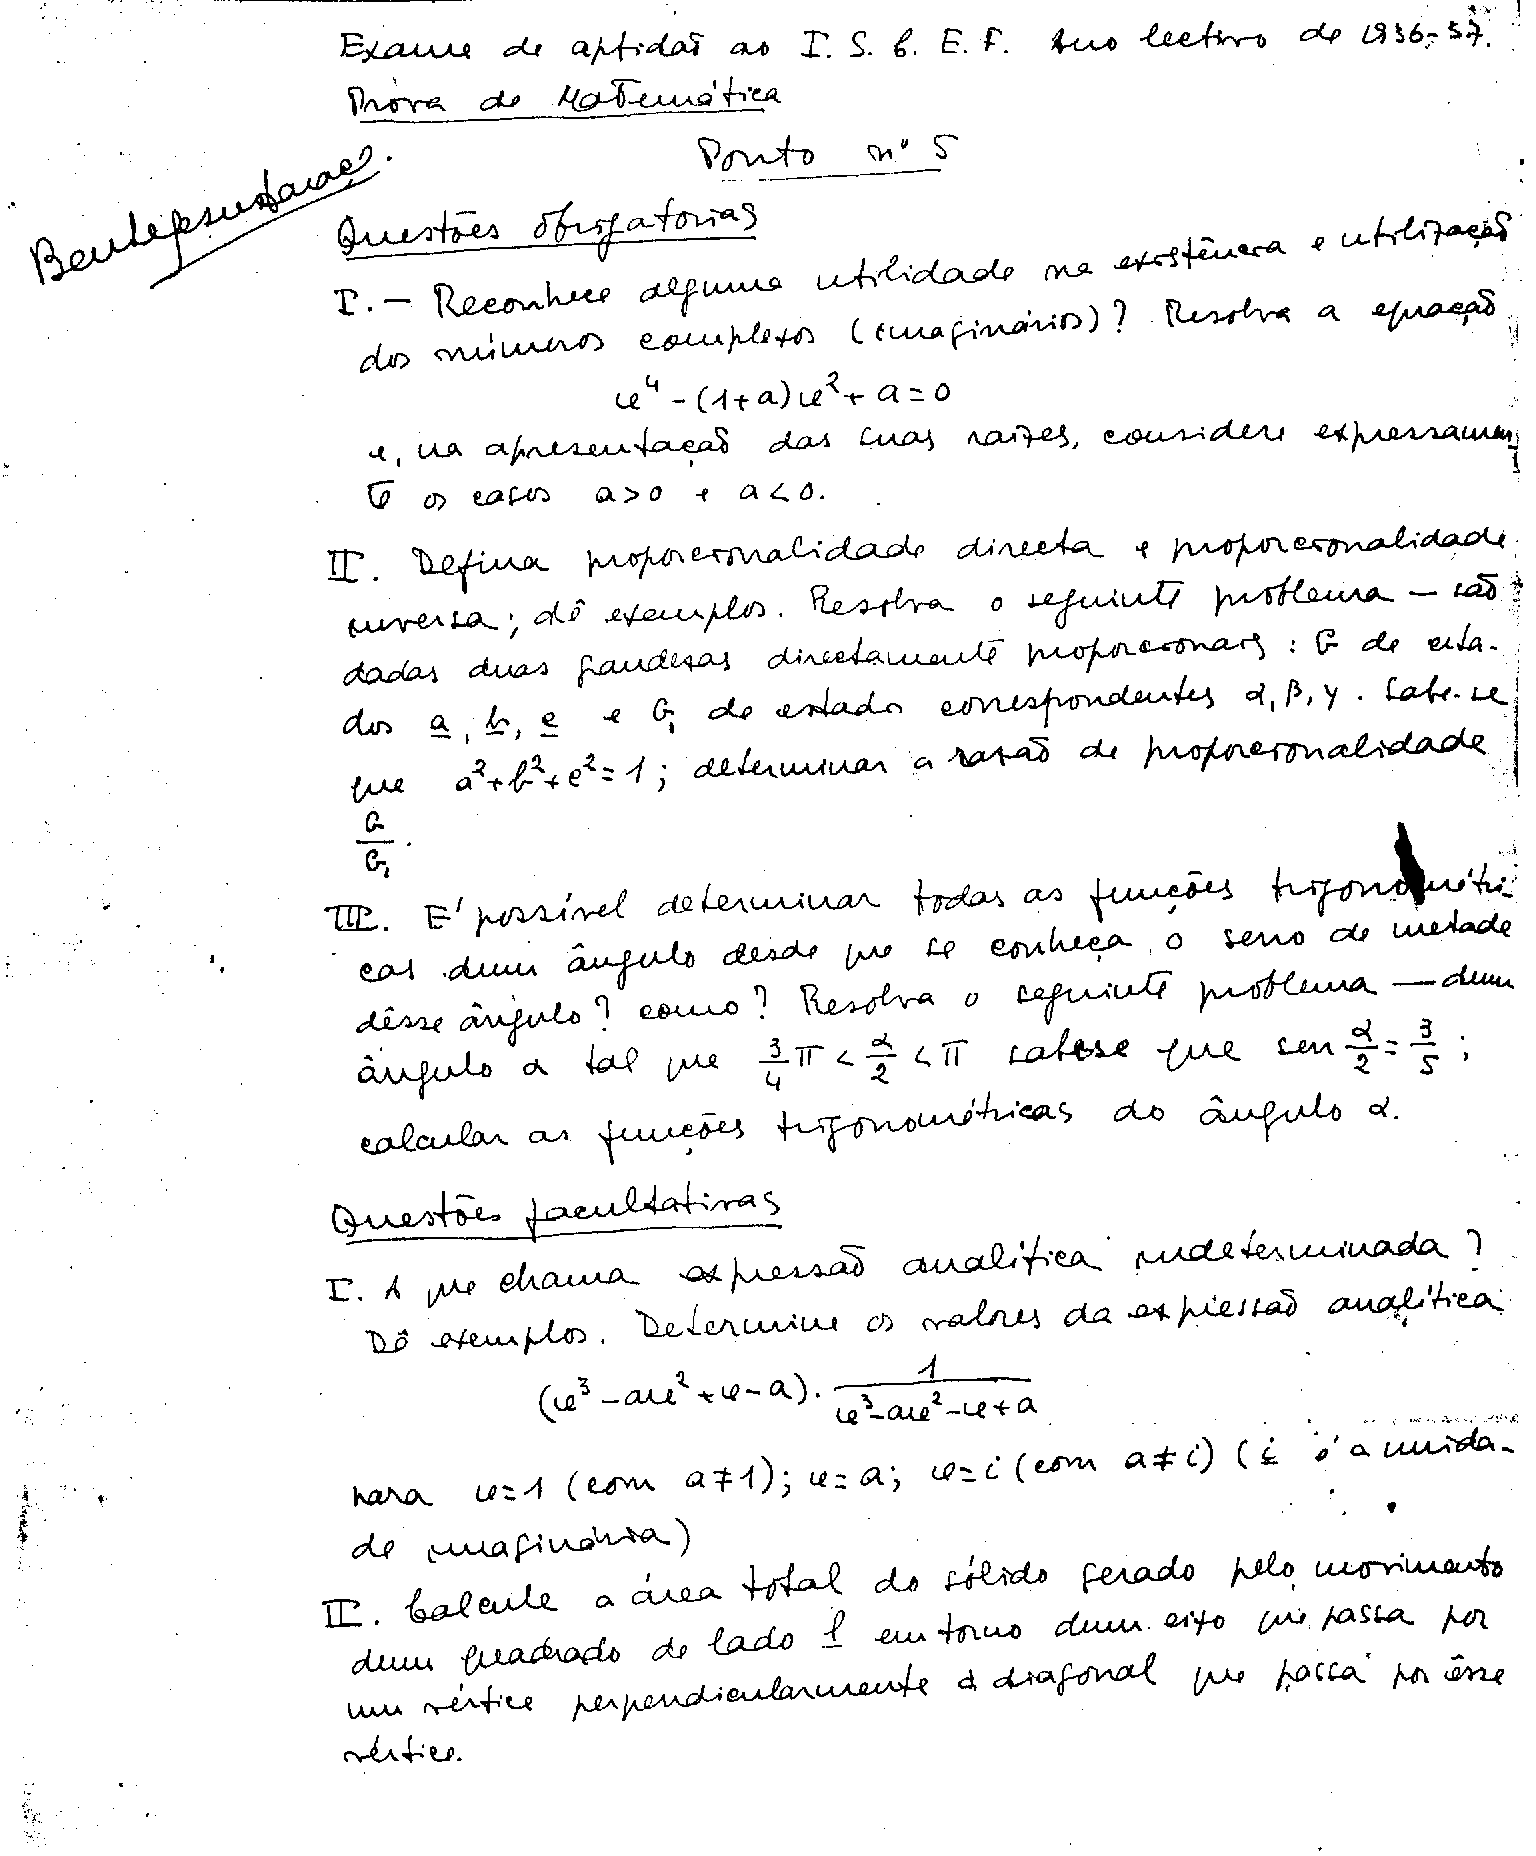 Exame de aptidão ao I. S. C. E. F. Ano lectivo de 1936-37.
Prova de Matemática
Ponto nº 5
Questões obrigatorias
I. — Reconhece alguma utilidade na existência e utilização
dos números complexos (imaginários)? Resolva a equação
x⁴ - (1+a)x² + a = 0
e, na apresentação das suas raízes, considere expressamen
te os casos a>0 e a<0.
II. Defina proporcionalidade directa e proporcionalidade
inversa; dê exemplos. Resolva o seguinte problema — são
dadas duas grandezas directamente proporcionais: G de esta-
dos a, b, c e G₁ de estados correspondentes α, β, γ. Sabe-se
que a²+b²+c²=1; determinar a razão de proporcionalidade
G/G₁.
III. E' possível determinar todas as funções trigonométri-
cas dum ângulo desde que se conheça o seno de metade
dêsse ângulo? como? Resolva o seguinte problema — dum
ângulo α tal que 3/4 π < α/2 < π sabe-se que sen α/2 = 3/5;
calcular as funções trigonométricas do ângulo α.
Questões facultativas
I. A que chama expressão analítica indeterminada?
Dê exemplos. Determine os valores da expressão analítica
(x³ - ax² + x - a) . 1/(x³ - ax² - x + a)
para x=1 (com a≠1); x=a; x=i (com a≠i) (i é a unida-
de imaginária)
II. Calcule a área total do sólido gerado pelo movimento
dum quadrado de lado l em torno dum eixo que passa por
um vértice perpendicularmente à diagonal que passa por êsse
vértice.